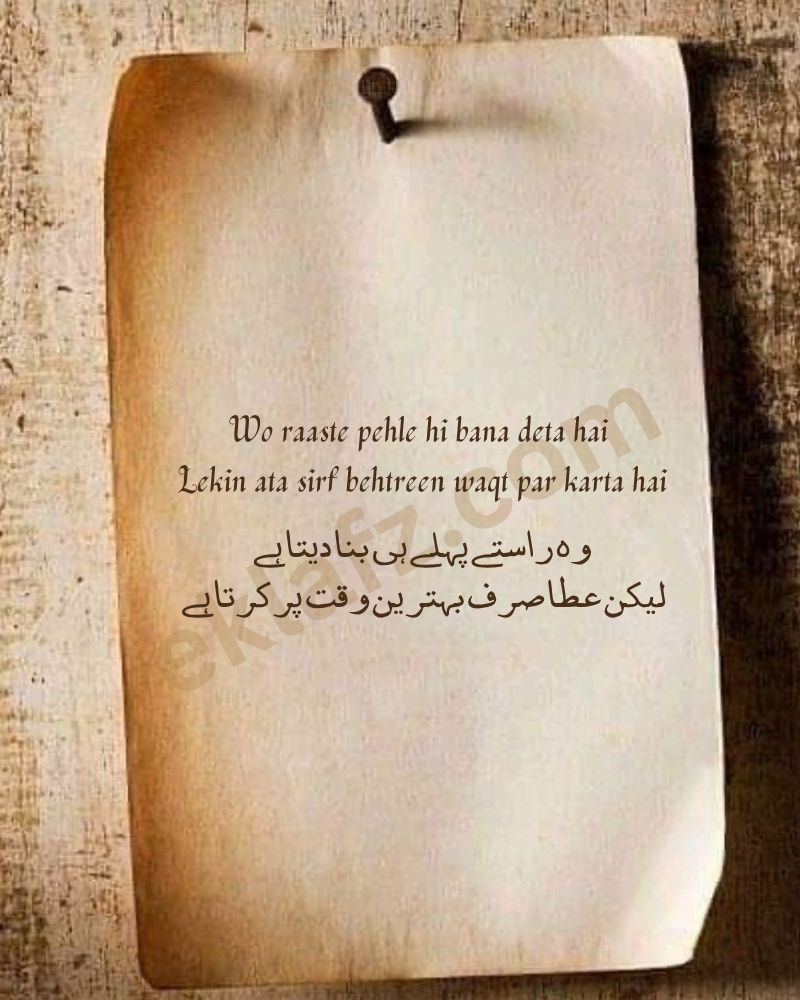 Wo raaste pehle hi bana deta hai
Lekin ata sirf behtreen waqt par karta hai
وہ راستے پہلے ہی بنا دیتا ہے
لیکن عطا صرف بہترین وقت پر کرتا ہے
ektafz.com